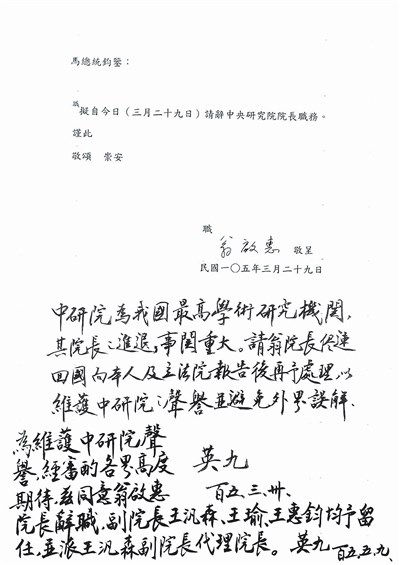 馬總統鈞鑒：
職擬自今日（三月二十九日）請辭中央研究院院長職務。
謹此
敬頌　崇安
職
翁啟惠　敬呈
民國一〇五年三月二十九日
中研院為我國最高學術研究機關，
其院長之進退，事關重大。請翁院長儘速
回國向本人及立法院報告後再予處理，以
維護中研院之聲譽並避免外界誤解。
英九
百五、三、卅、
為維護中研院聲
譽，經審酌各界高度
期待，茲同意翁啟惠
院長辭職，副院長王汎森、王瑜、王惠鈞均予留
任，並派王汎森副院長代理院長。英九 百五、五、九、